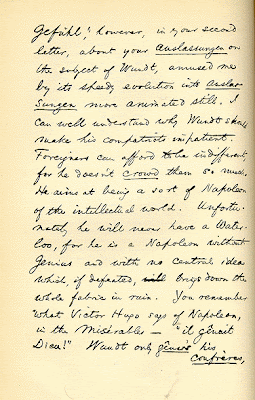 Gefühl! however, in your second
letter, about your Auslassungen on
the subject of Wundt, amused me
by its speedy evolution into Auslas-
sungen more animated still. I
can well understand why Wundt should
make his compatriots impatient.
Foreigners can afford to be indifferent,
for he doesn't crowd them so much.
He aims at being a sort of Napoleon
of the intellectual world. Unfortu-
nately, he will never have a Water-
loo, for he is a Napoleon without
genius and with no central idea
which, if defeated, brings down the
whole fabric in ruin. You remember
what Victor Hugo says of Napoleon,
in the Misérables — "il gênait
Dieu!" Wundt only gênes his
confrères,